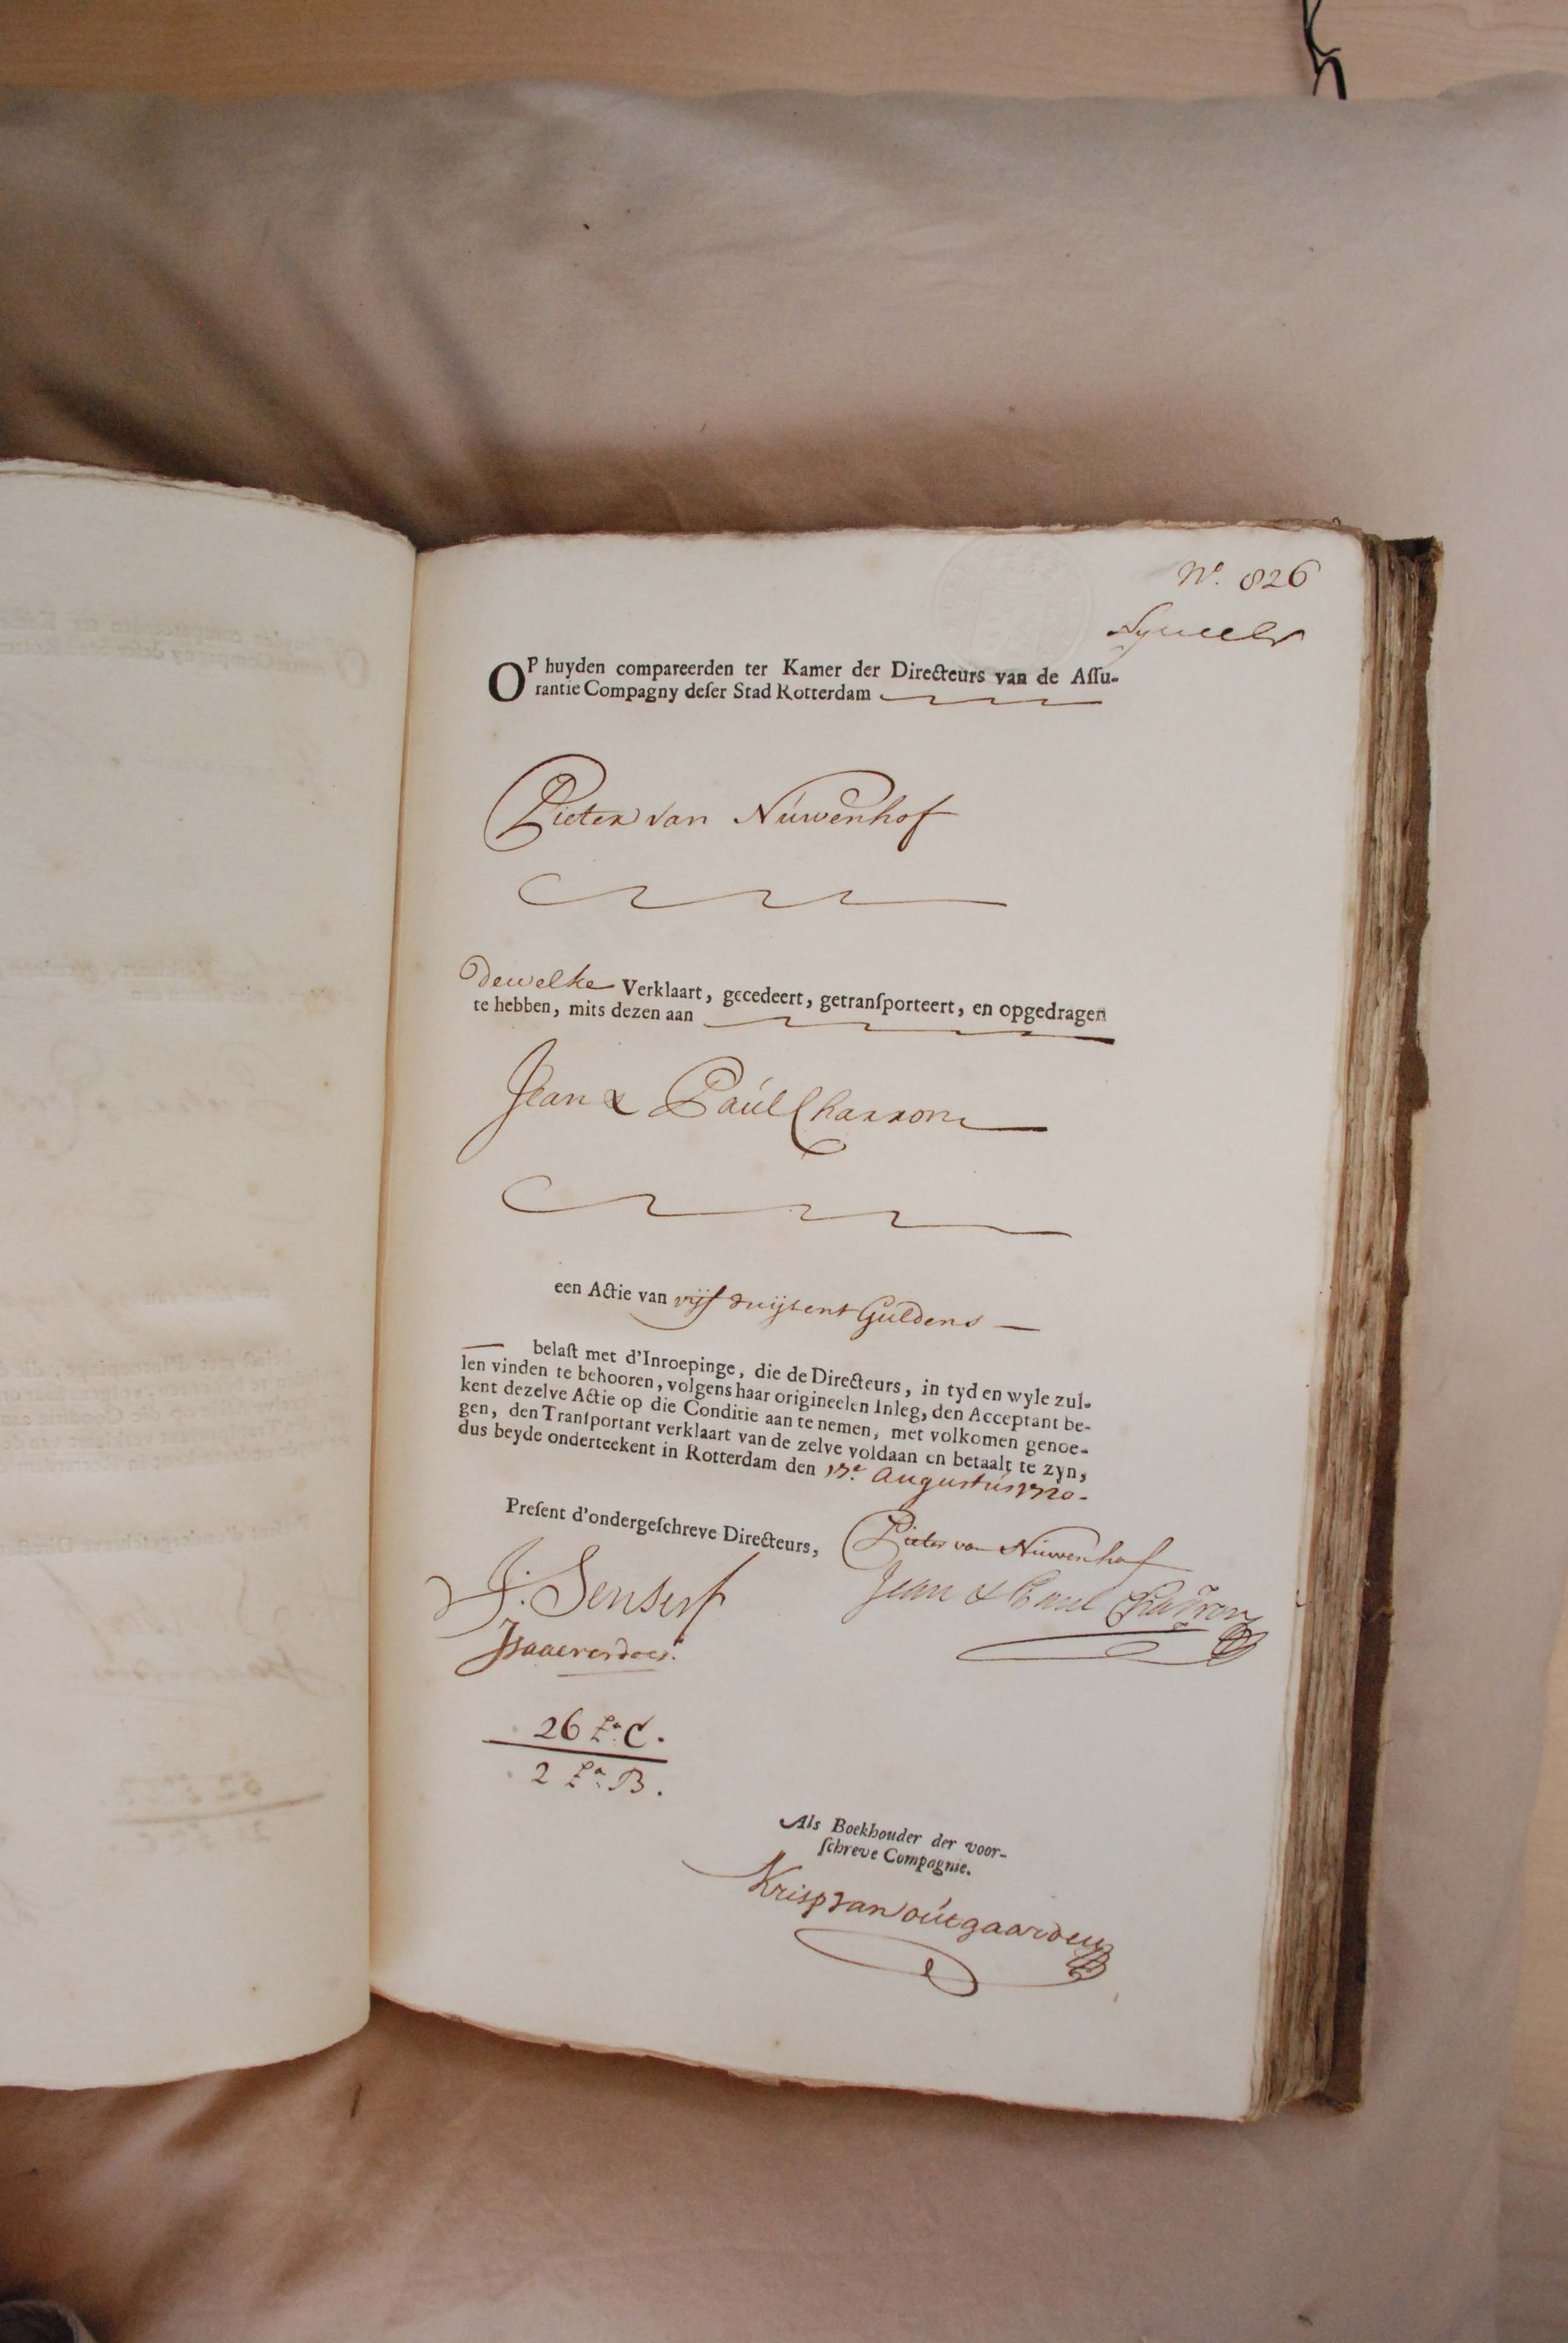 N.º 826
OP huyden compareerden ter Kamer der Directeurs van de Aſſu-
rantie Compagny deſer Stad Rotterdam
Pieter van Núwenhof
Dewelke Verklaart, gecedeert, getranſporteert, en opgedragen
te hebben, mits dezen aan
Jean & Paúl Charron
een Actie van vijf duijsent Guldens
belaſt met d'Inroepinge, die de Directeurs, in tyd en wyle zul-
len vinden te behooren, volgens haar origineelen Inleg, den Acceptant be-
kent dezelve Actie op die Conditie aan te nemen, met volkomen genoe-
gen, den Tranſportant verklaart van de zelve voldaan en betaalt te zyn,
dus beyde onderteekent in Rotterdam den 17.e Augustús 1720-
Preſent d'ondergeſchreve Directeurs,
Pieter van Núwenhof
J: Senserf
Jean & Paul Charron
26 L.a C.
2 L.a B.
Als Boekhouder der voor-
ſchreve Compagnie.
Krisp van oútgaarden